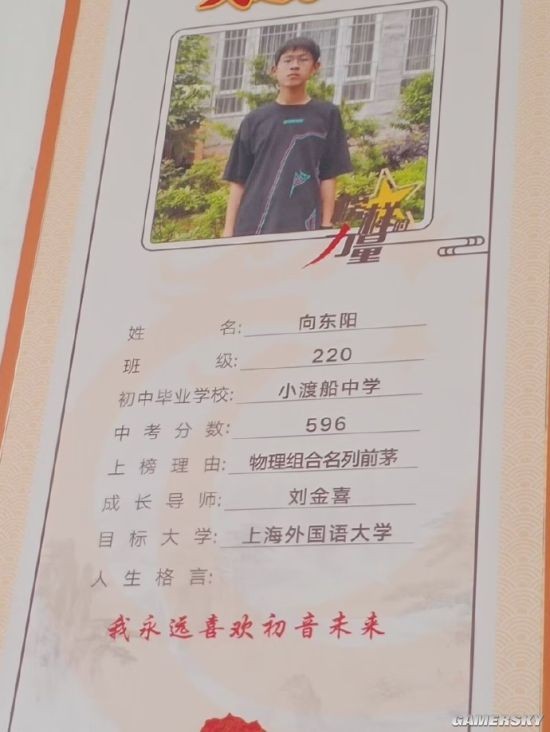 榜样的
力量
姓名: 向东阳
班级: 220
初中毕业学校: 小渡船中学
中考分数: 596
上榜理由: 物理组合名列前茅
成长导师: 刘金喜
目标大学: 上海外国语大学
人生格言:
我永远喜欢初音未来
GAMERSKY